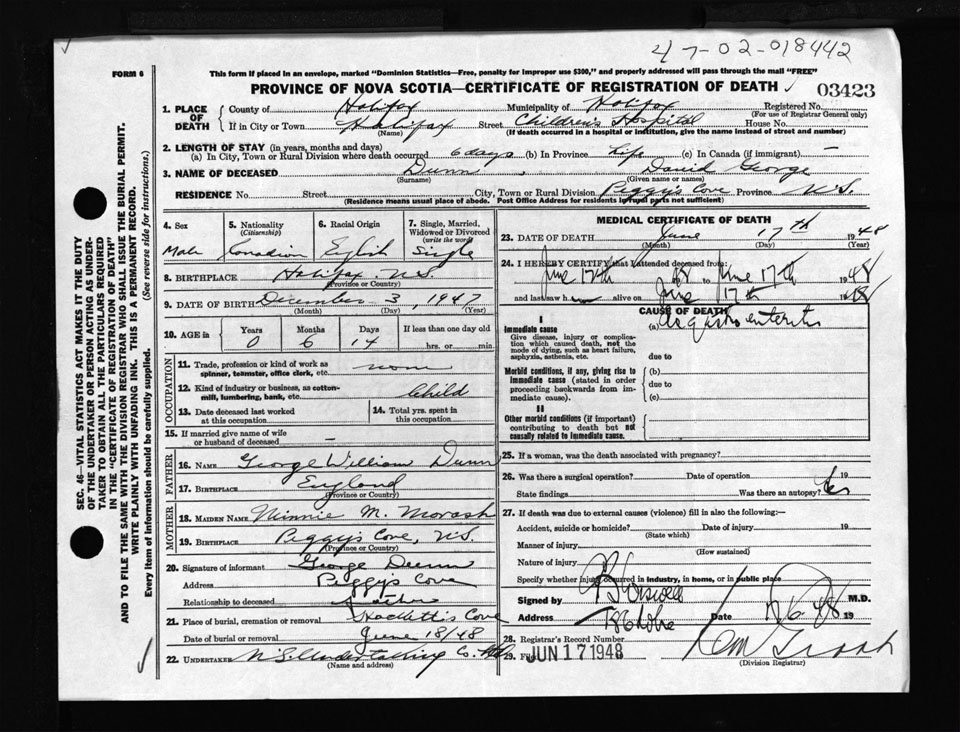 47-02-018442
FORM 6
This form if placed in an envelope, marked "Dominion Statistics—Free, penalty for improper use $300," and properly addressed will pass through the mail "FREE"
PROVINCE OF NOVA SCOTIA—CERTIFICATE OF REGISTRATION OF DEATH
03423
1. PLACE OF DEATH
County of Halifax Municipality of Halifax Registered No.
(For use of Registrar General only)
If in City or Town Halifax Street Children's Hospital House No.
(Name) (If death occurred in a hospital or institution, give the name instead of street and number)
2. LENGTH OF STAY (in years, months and days)
(a) In City, Town or Rural Division where death occurred 6 days (b) In Province Life (c) In Canada (if immigrant) —
3. NAME OF DECEASED Dunn, David George
(Surname) (Given name or names)
RESIDENCE No. Street City, Town or Rural Division Peggy's Cove Province N.S.
(Residence means usual place of abode. Post Office Address for residents in rural parts not sufficient)
4. Sex
Male
5. Nationality
(Citizenship)
Canadian
6. Racial Origin
English
7. Single, Married, Widowed or Divorced
(write the word)
Single
8. BIRTHPLACE Halifax N.S.
(Province or Country)
9. DATE OF BIRTH December 3, 1947
(Month) (Day) (Year)
10. AGE in
Years Months Days If less than one day old
0 6 14 hrs. or min.
OCCUPATION
11. Trade, profession or kind of work as spinner, teamster, office clerk, etc. none
12. Kind of industry or business, as cotton-mill, lumbering, bank, etc. Child
13. Date deceased last worked at this occupation
14. Total yrs. spent in this occupation
15. If married give name of wife or husband of deceased —
FATHER
16. NAME George William Dunn
17. BIRTHPLACE England
(Province or Country)
MOTHER
18. MAIDEN NAME Minnie M. Morash
19. BIRTHPLACE Peggy's Cove, N.S.
(Province or Country)
20. Signature of informant George Dunn
Address Peggy's Cove
Relationship to deceased father
21. Place of burial, cremation or removal Hackett's Cove
Date of burial or removal June 18/48
22. UNDERTAKER N.S. Undertaking Co.
(Name and address)
MEDICAL CERTIFICATE OF DEATH
23. DATE OF DEATH June 17th 1948
(Month) (Day) (Year)
24. I HEREBY CERTIFY that I attended deceased from:
June 12th 48 to June 17th 1948
and last saw him alive on June 17th 1948
CAUSE OF DEATH
I
Immediate cause (a) gastro enteritis
Give disease, injury or complication which caused death, not the mode of dying, such as heart failure, asphyxia, asthenia, etc.
due to
Morbid conditions, if any, giving rise to immediate cause (stated in order proceeding backwards from immediate cause).
(b)
due to
(c)
II
Other morbid conditions (if important) contributing to death but not causally related to immediate cause.
25. If a woman, was the death associated with pregnancy?
26. Was there a surgical operation? Date of operation 19
State findings Was there an autopsy?
27. If death was due to external causes (violence) fill in also the following:—
Accident, suicide or homicide? Date of injury 19
(State which)
Manner of injury
(How sustained)
Nature of injury
Specify whether injury occurred in industry, in home, or in public place
Signed by M.D.
Address Date 17 6 48 19
28. Registrar's Record Number
29. Filed JUN 17 1948
(Division Registrar)
SEC. 46—VITAL STATISTICS ACT MAKES IT THE DUTY
OF THE UNDERTAKER OR PERSON ACTING AS UNDER-
TAKER TO OBTAIN ALL THE PARTICULARS REQUIRED
IN THE "CERTIFICATE OF REGISTRATION OF DEATH"
AND TO FILE THE SAME WITH THE DIVISION REGISTRAR WHO SHALL ISSUE THE BURIAL PERMIT.
WRITE PLAINLY WITH UNFADING INK. THIS IS A PERMANENT RECORD.
Every item of information should be carefully supplied. (See reverse side for instructions.)